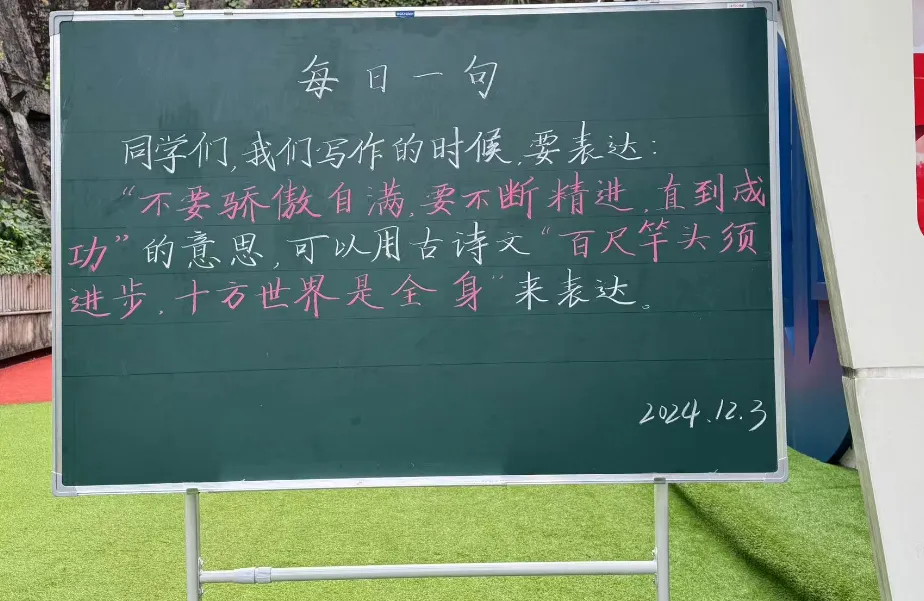 每日一句
同学们,我们写作的时候,要表达:
“不要骄傲自满,要不断精进,直到成
功”的意思,可以用古诗文“百尺竿头须
进步,十方世界是全身”来表达。
2024.12.3